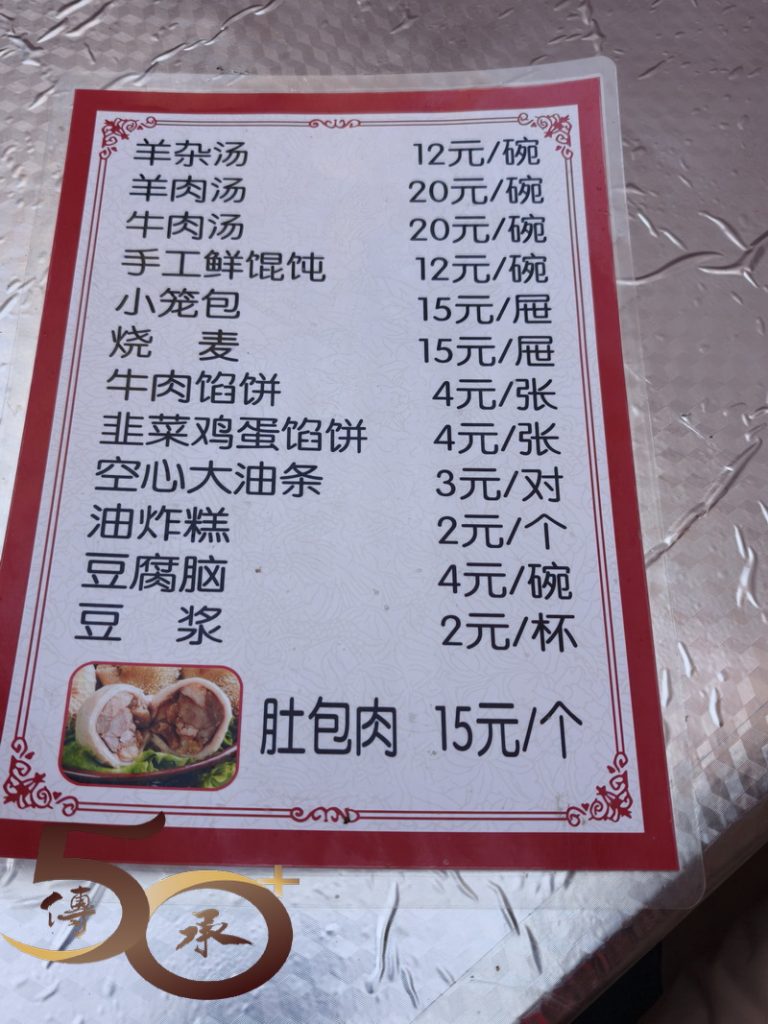 羊杂汤 12元/碗
羊肉汤 20元/碗
牛肉汤 20元/碗
手工鲜馄饨 12元/碗
小笼包 15元/屉
烧 麦 15元/屉
牛肉馅饼 4元/张
韭菜鸡蛋馅饼 4元/张
空心大油条 3元/对
油炸糕 2元/个
豆腐脑 4元/碗
豆 浆 2元/杯
肚包肉 15元/个
50+
傳承